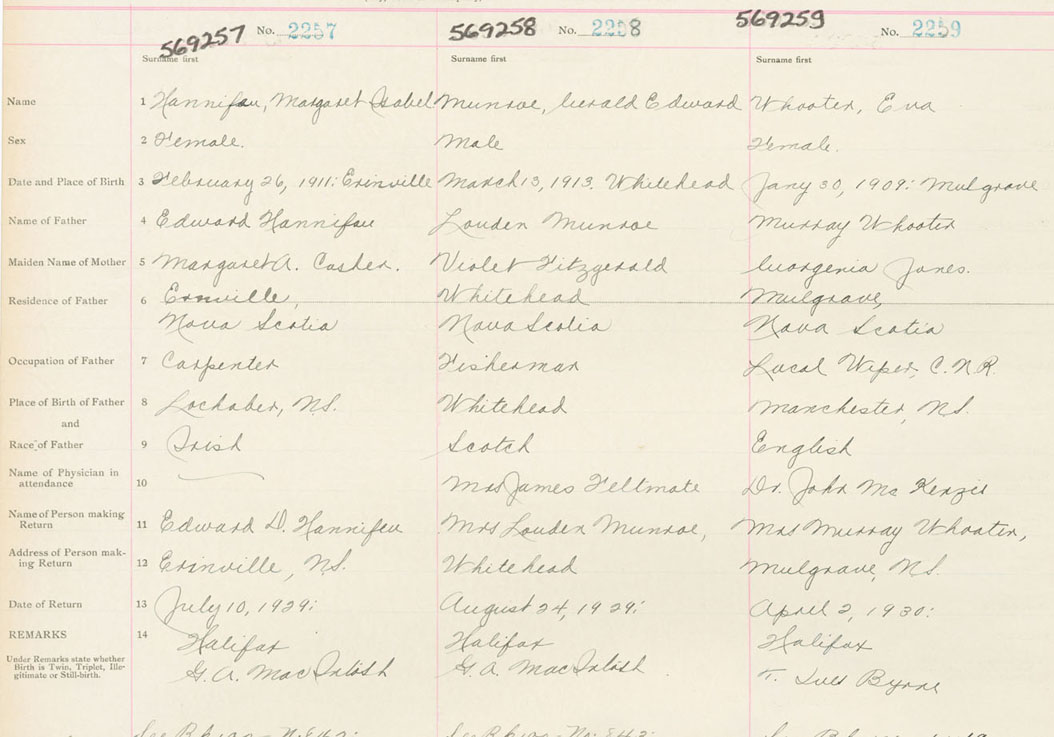 569257 No. 2257
569258 No. 2258
569259 No. 2259
Surname first Surname first Surname first
Name 1 Hannifau, Margaret Isabel Munroe, Gerald Edward Whooter, Eva
Sex 2 Female. Male Female.
Date and Place of Birth 3 February 26, 1911: Erinville March 13, 1913. Whitehead Jany 30, 1909: Mulgrave
Name of Father 4 Edward Hannifau Louden Munroe Murray Whooter
Maiden Name of Mother 5 Margaret A. Violet Fitzgerald Jones.
Residence of Father 6 Whitehead Mulgrave,
Nova Scotia Nova Scotia Nova Scotia
Occupation of Father 7 Carpenter Fisherman Local Wiper, C.N.R.
Place of Birth of Father 8 Lochaber, N.S. Whitehead Manchester, N.S.
and
Race of Father 9 Irish Scotch English
Name of Physician in
attendance 10 Mrs James Feltmate Dr. John McKenzie
Name of Person making
Return 11 Edward D. Hannifau Mrs Louden Munroe, Mrs Murray Whooter,
Address of Person mak-
ing Return 12 Erinville, N.S. Whitehead Mulgrave, N.S.
Date of Return 13 July 10, 1929: August 24, 1929: April 2, 1930:
REMARKS 14 Halifax Halifax Halifax
Under Remarks state whether
Birth is Twin, Triplet, Ille-
gitimate or Still-birth.
G. A. MacIntosh G. A. MacIntosh T. Ives Byrne